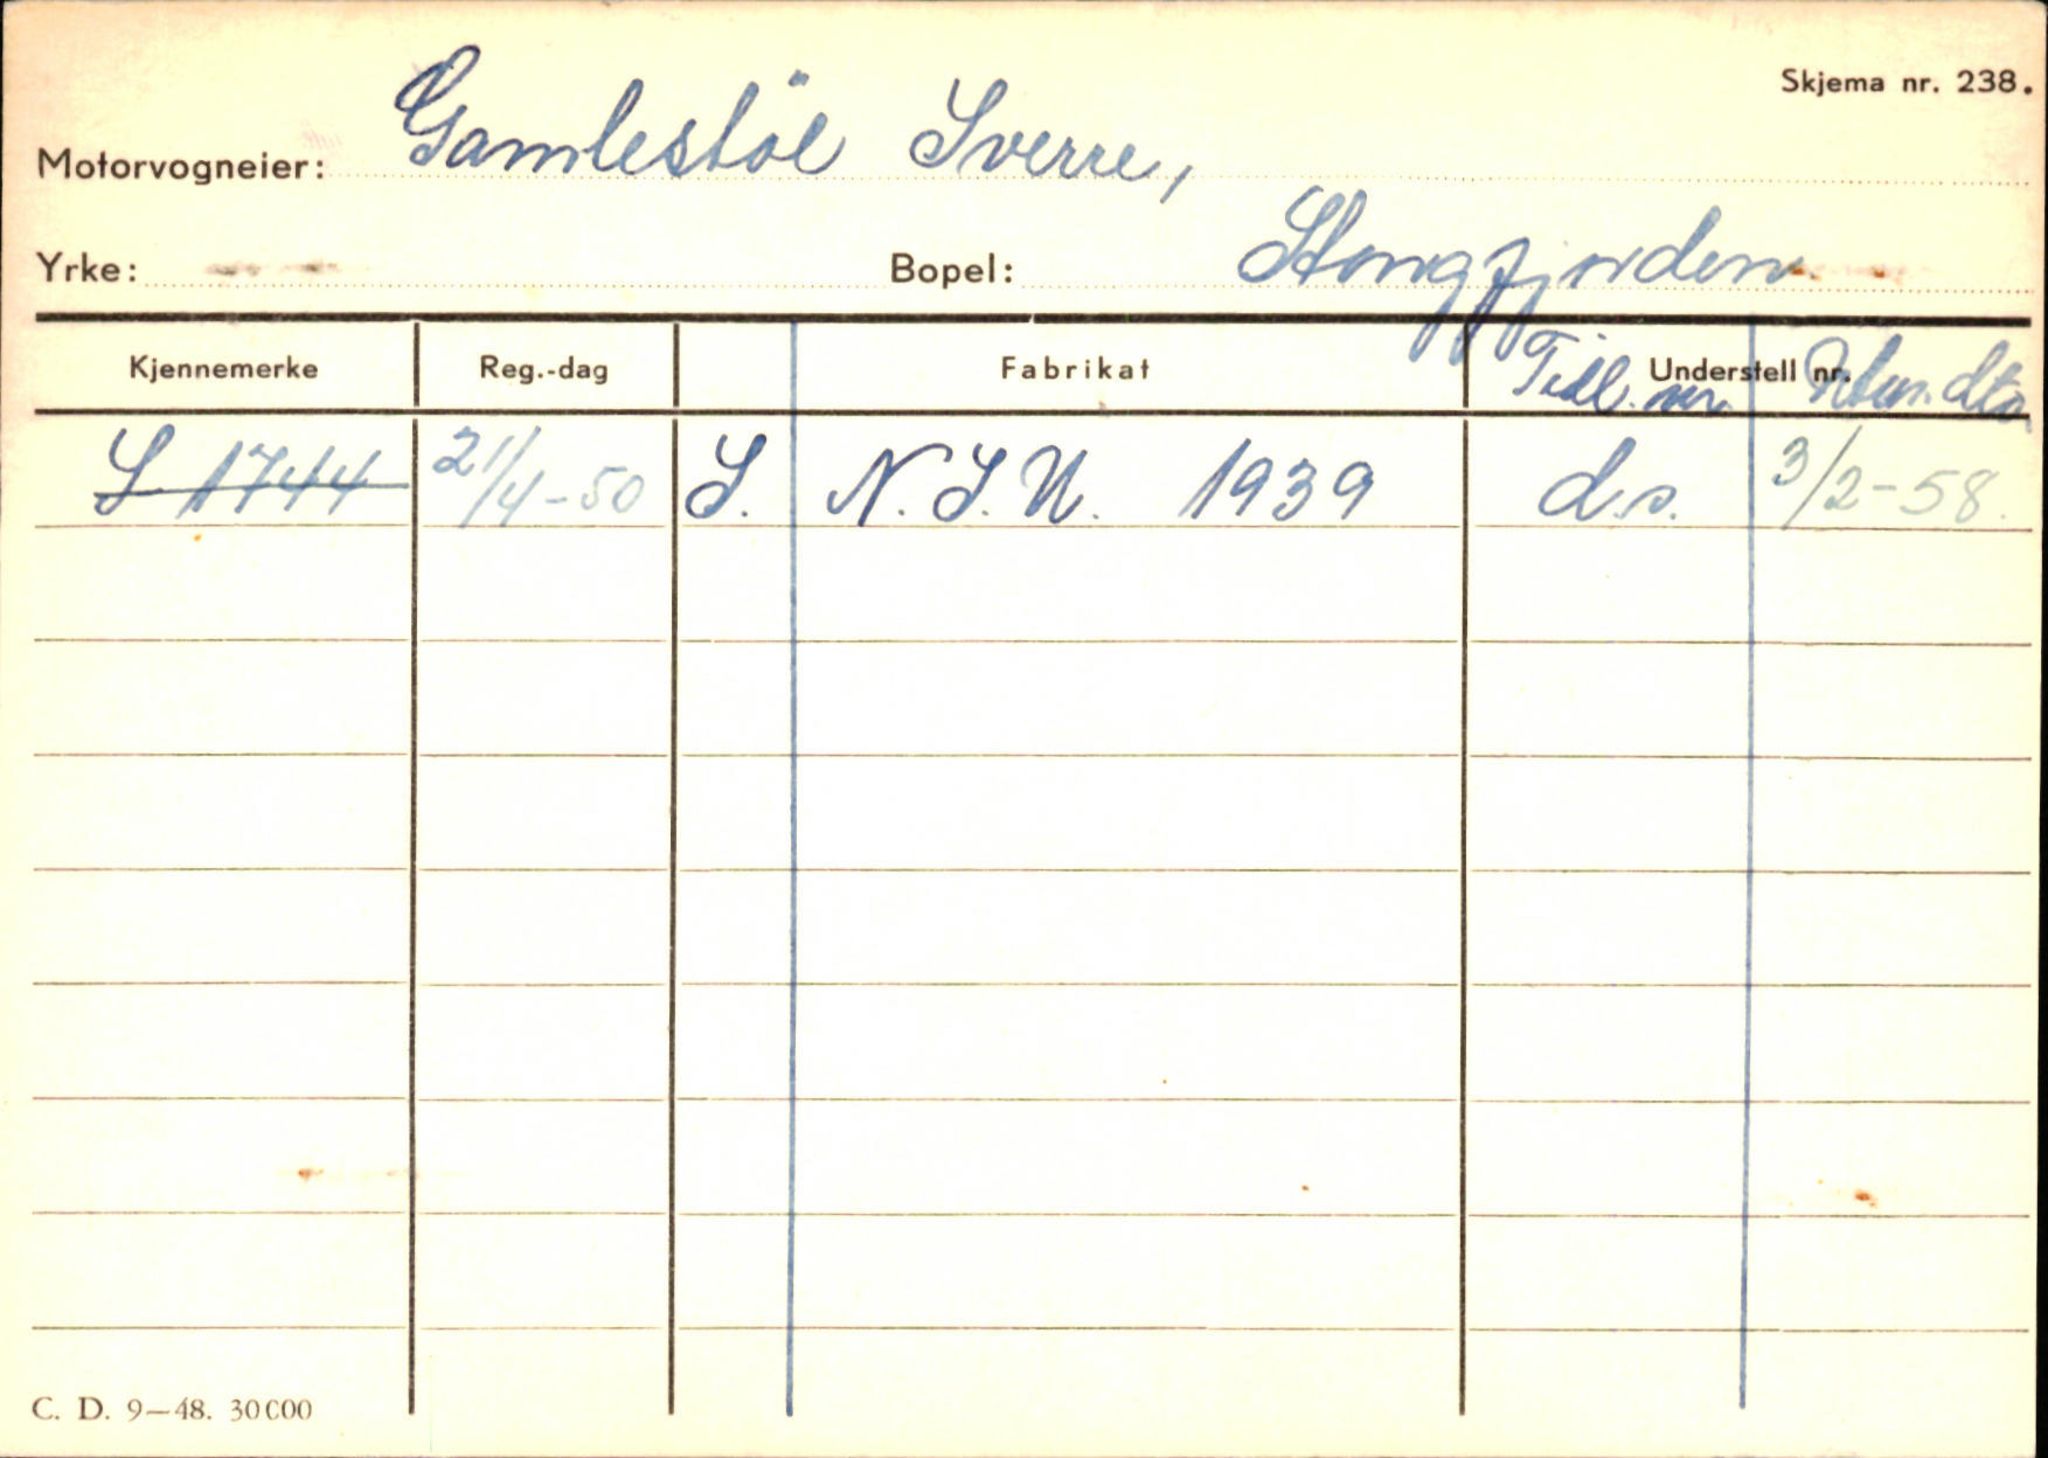 Skjema nr. 238.
Motorvogneier: Gamlestöl Sverre,
Yrke: Bopel: Stongfjorden
Kjennemerke Reg.-dag Fabrikat Understell nr.
Tidl. nr. Utm. dto
S 1744 21/4-50 S. N.S.U. 1939 d.s. 3/2-58.
C. D. 9—48. 30000